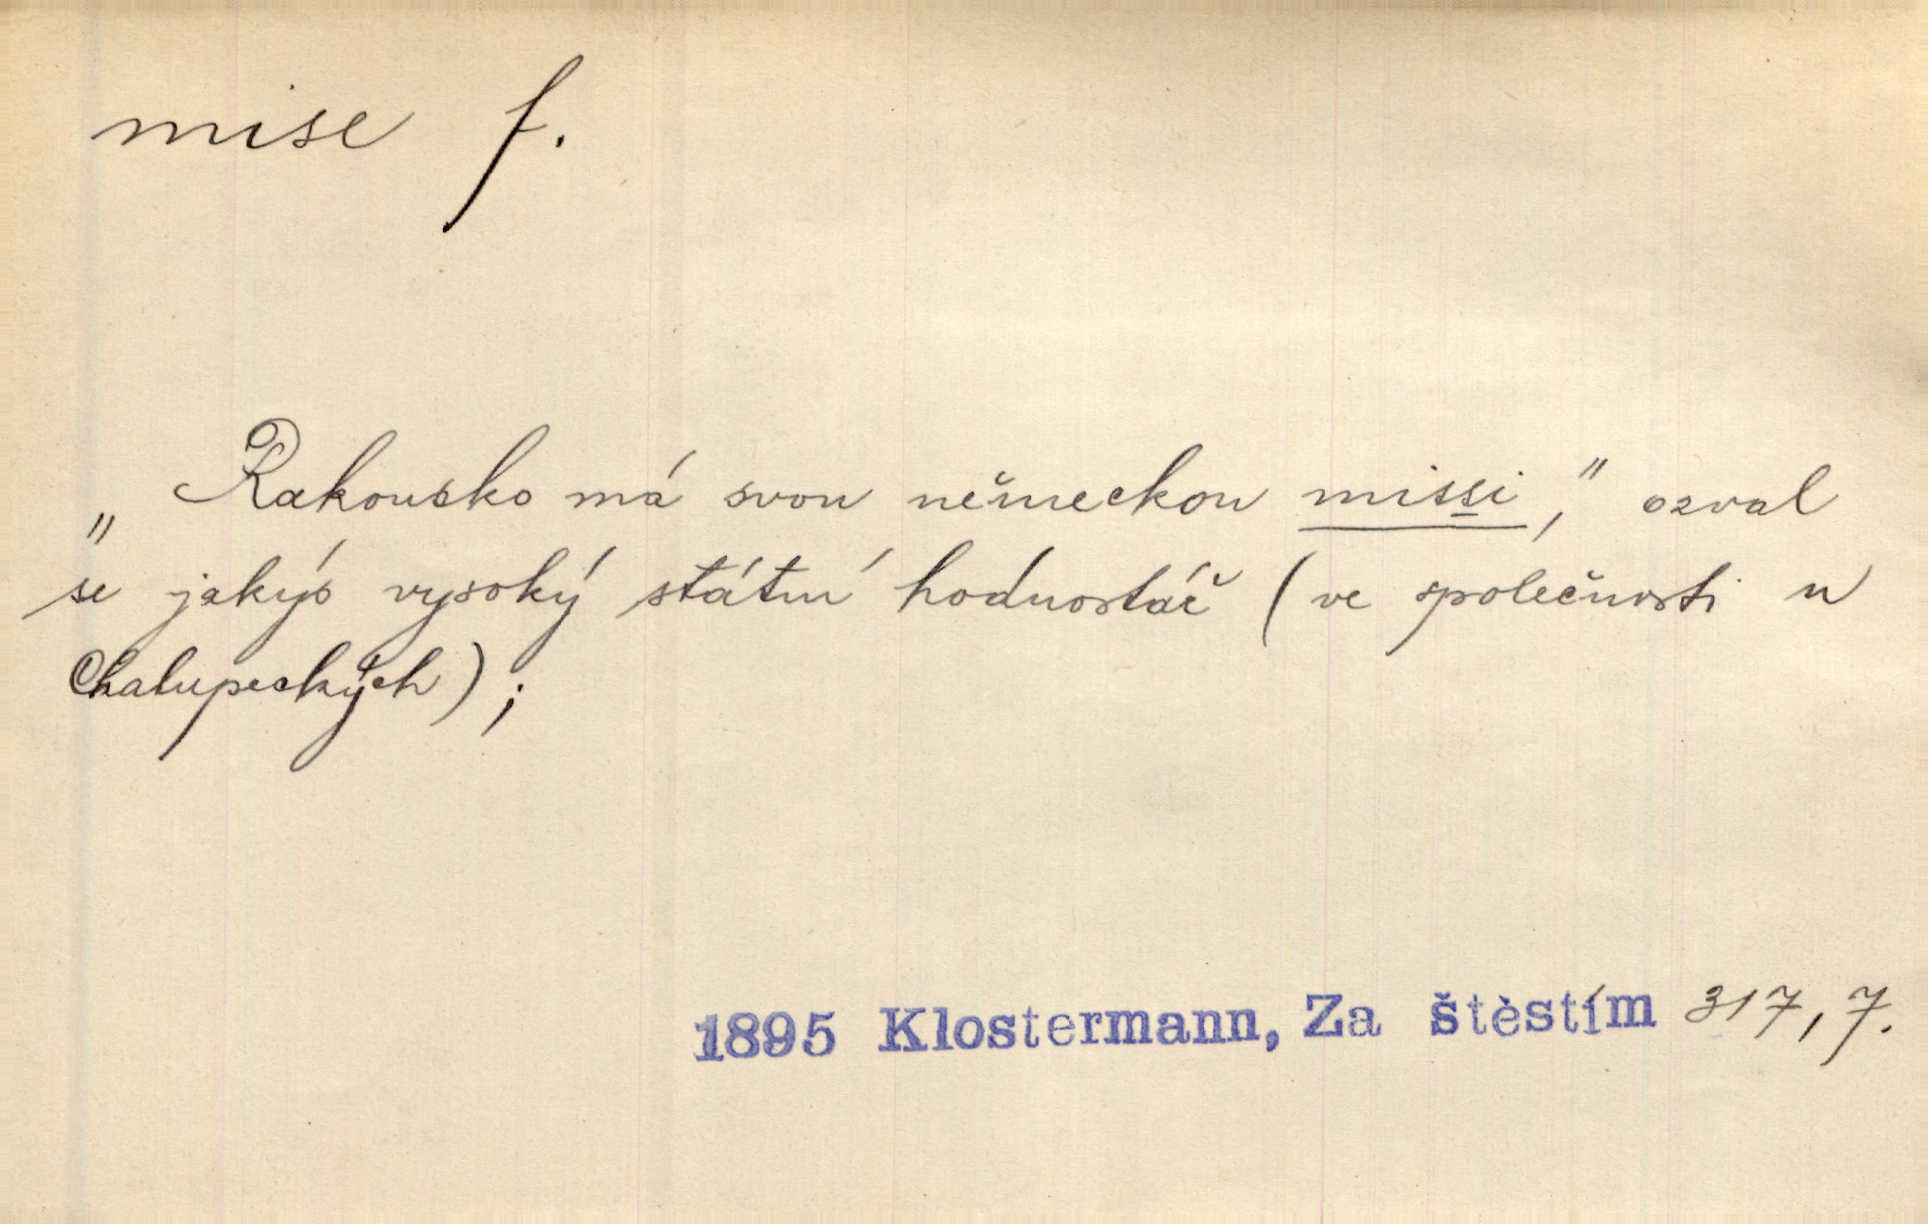 mise f.
„Rakousko má svou německou missi,“ ozval
se jakýs vysoký státní hodnostář (ve společnosti u
Chalupeckých);
1895 Klostermann, Za štěstím 317, 7.